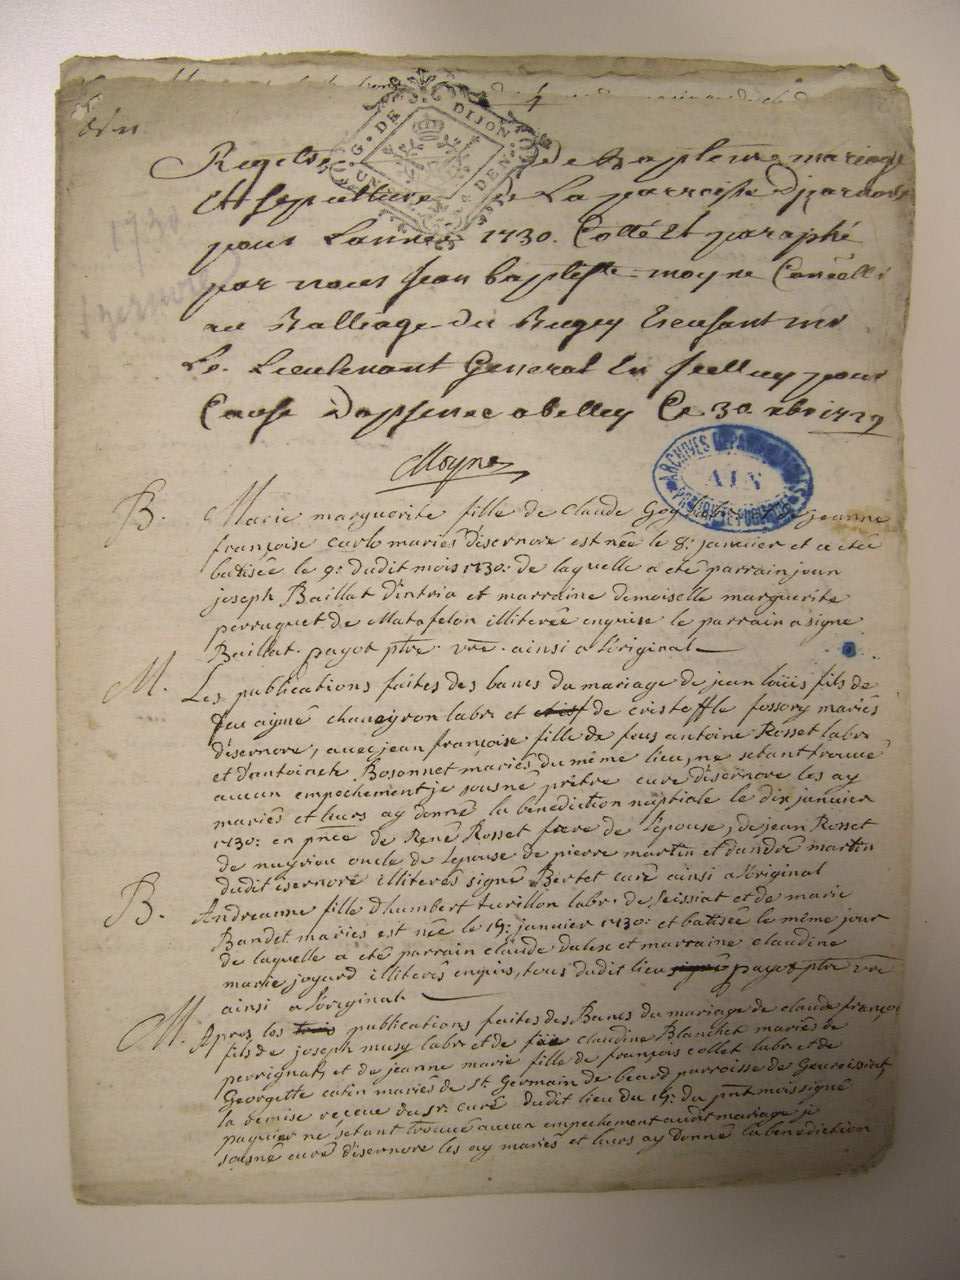 G. DE DIJON
UN DEN
1730
Izernore
Registre de Baptesme mariage
Et sepulture de La parroisse Dizernore
pour Lannee 1730. Cotté Et paraphé
par nous Jean baptiste moyne Conseill
au Balliage du Bugey Excusant mr
Le Lieutenant General En icelluy pour
Cause Dapsence a belley Ce 30 xbre 1729
Moyne
ARCHIVES DEPARTEMENTALES
AIN
B. Marie marguerite fille de claude Goy labr et de jeanne
françoise carlo mariés d'isernore est née le 8: janvier et a eté
batisée le 9: dudit mois 1730: de laquelle a eté parrain jean
joseph Baillat d'intria et marraine demoiselle marguerite
perruquet de Matafelon illiterée enquise le parrain a signe
Baillat. payot ptre. vre. ainsi a l'original
M. Les publications faites des bancs du mariage de jean loüis fils de
feu aymé chaneyron labr. et de cristofle fossory mariés
d'isernore, avec jean françoise fille de feus antoine Rosset labr
et d'antoinete Bosonnet mariés du même lieu, ne setant trouvé
aucun empechement je sousné prêtre curé d'isernore les ay
mariés et leurs ay donné la bénediction nuptiale le dix janvier
1730: en pnce de René Rosset frere de l'epouse, de jean Rosset
de nuyriou oncle de l'epouse de pierre martin et d'andré martin
dudit isernore illiterés signé Bertet curé ainsi a l'original
B. Andreanne fille d'humbert turillon labr. de seissiat et de marie
Bandet mariés est née le 19: janvier 1730: et batisée le même jour
de laquelle a eté parrain claude dalex et marraine claudine
marie joyard illiterés enquis, tous dudit lieu signé payot ptre vre
ainsi a l'original
M. Apres les trois publications faites des Bans du mariage de claude françois
fils de joseph musy labr et de claudine Blanchet mariés de
perrignat, et de jeanne marie fille de françois collet labr et de
Georgette catin mariés de St Germain de beard parroisse de Geovreissiat,
la remise reçeue du sr. curé dudit lieu du 19: du pnt mois signé
paquier né s'etant trouvé aucun empechement audit mariage je
sousné curé d'isernore les ay mariés et leurs ay donné la bénediction